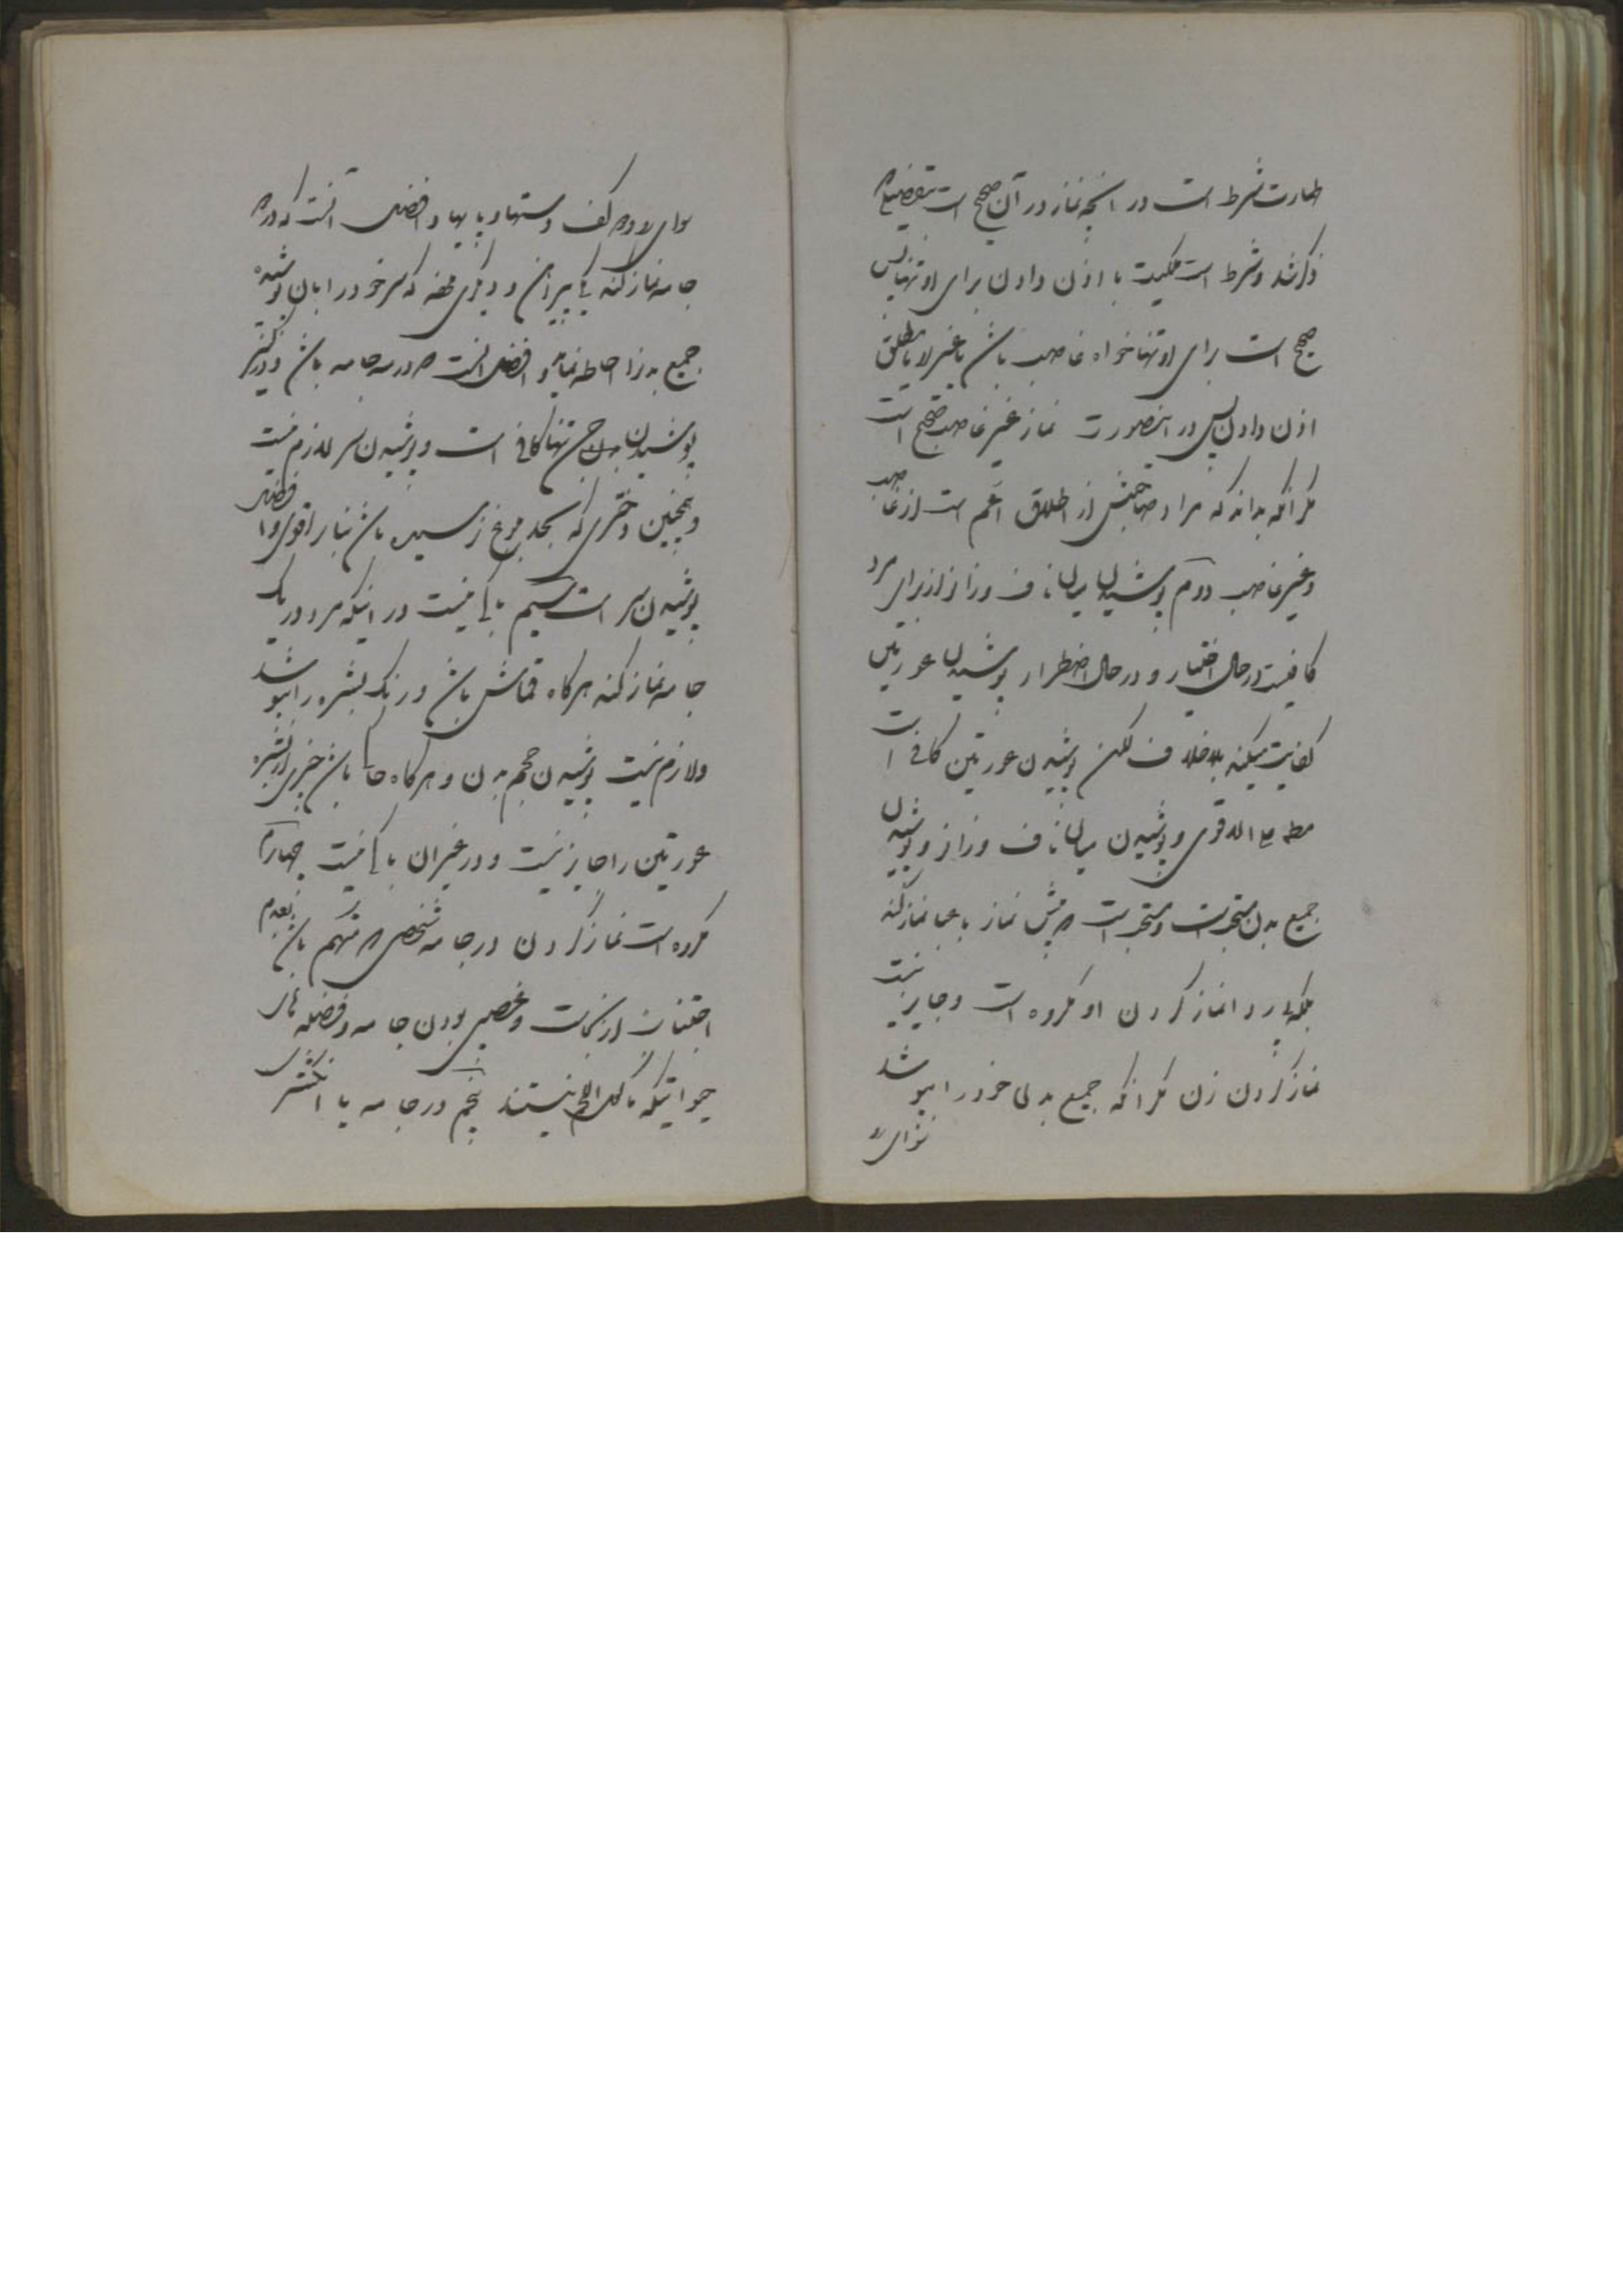 طهارت شرط است در آنچه نماز در آن صحیح است بتفصیلیکه
ذکر شد و شرط است ملکیت یا اذن دادن برای او تنها پس
صحیح است برای او تنها خواه غاصب باشد یا غیر او یا مطلق
اذن دادن پس در اینصورت نماز غیر غاصب صحیح است
مکر آنکه بداند که مراد صاحبش از اطلاق اعم است از غاصب
و غیر غاصب دوم پوشیدن میان ناف و زانو از برای مرد
کافیست در حال اختیار و در حال اضطرار پوشیدن عورتین
کفایت میکند بلاخلاف لکن پوشیدن عورتین کافی است
مط علی الاقوی و پوشیدن میان ناف و زانو و پوشیدن
جمیع بدن مستحبست و مستحبست که پیش نماز با عبا نماز کند
بلکه بی ردا نماز کردن او مکروه است و جایز نیست
نماز کردن زن مکر آنکه جمیع بدن خود را بپوشد
سوای
سوای رو و کف دستها و پاها و افضل آنست که در دو
جامه نماز کند یکی پیراهن و دیکری مقنعه که سر خود را بآن پوشیده
جمیع بدن را احاطه نماید و افضل آنست که در سه جامه باشد و در کنیز
پوشیدن بدن تنها کافی است و پوشیدن سر لازم نیست
و همچنین دختری که بحد بلوغ نرسیده باشد بنابر اقوی و افضل
پوشیدن سر است سیم باکی نیست در اینکه مرد در یک
جامه نماز کند هرکاه قماش باشد و رنک بشره را بپوشد
و لازم نیست پوشیدن حجم بدن و هرکاه حاکی باشد چیزی از بشره
عورتین را جایز نیست و در غیر آن باکی نیست چهارم
مکروه است نماز کردن در جامه شخصی که متهم باشد بعدم
اجتناب از نجاست و غصبی بودن جامه و فضله های
حیواناتیکه ماکول اللحم نیستند پنجم در جامه یا انکشتری